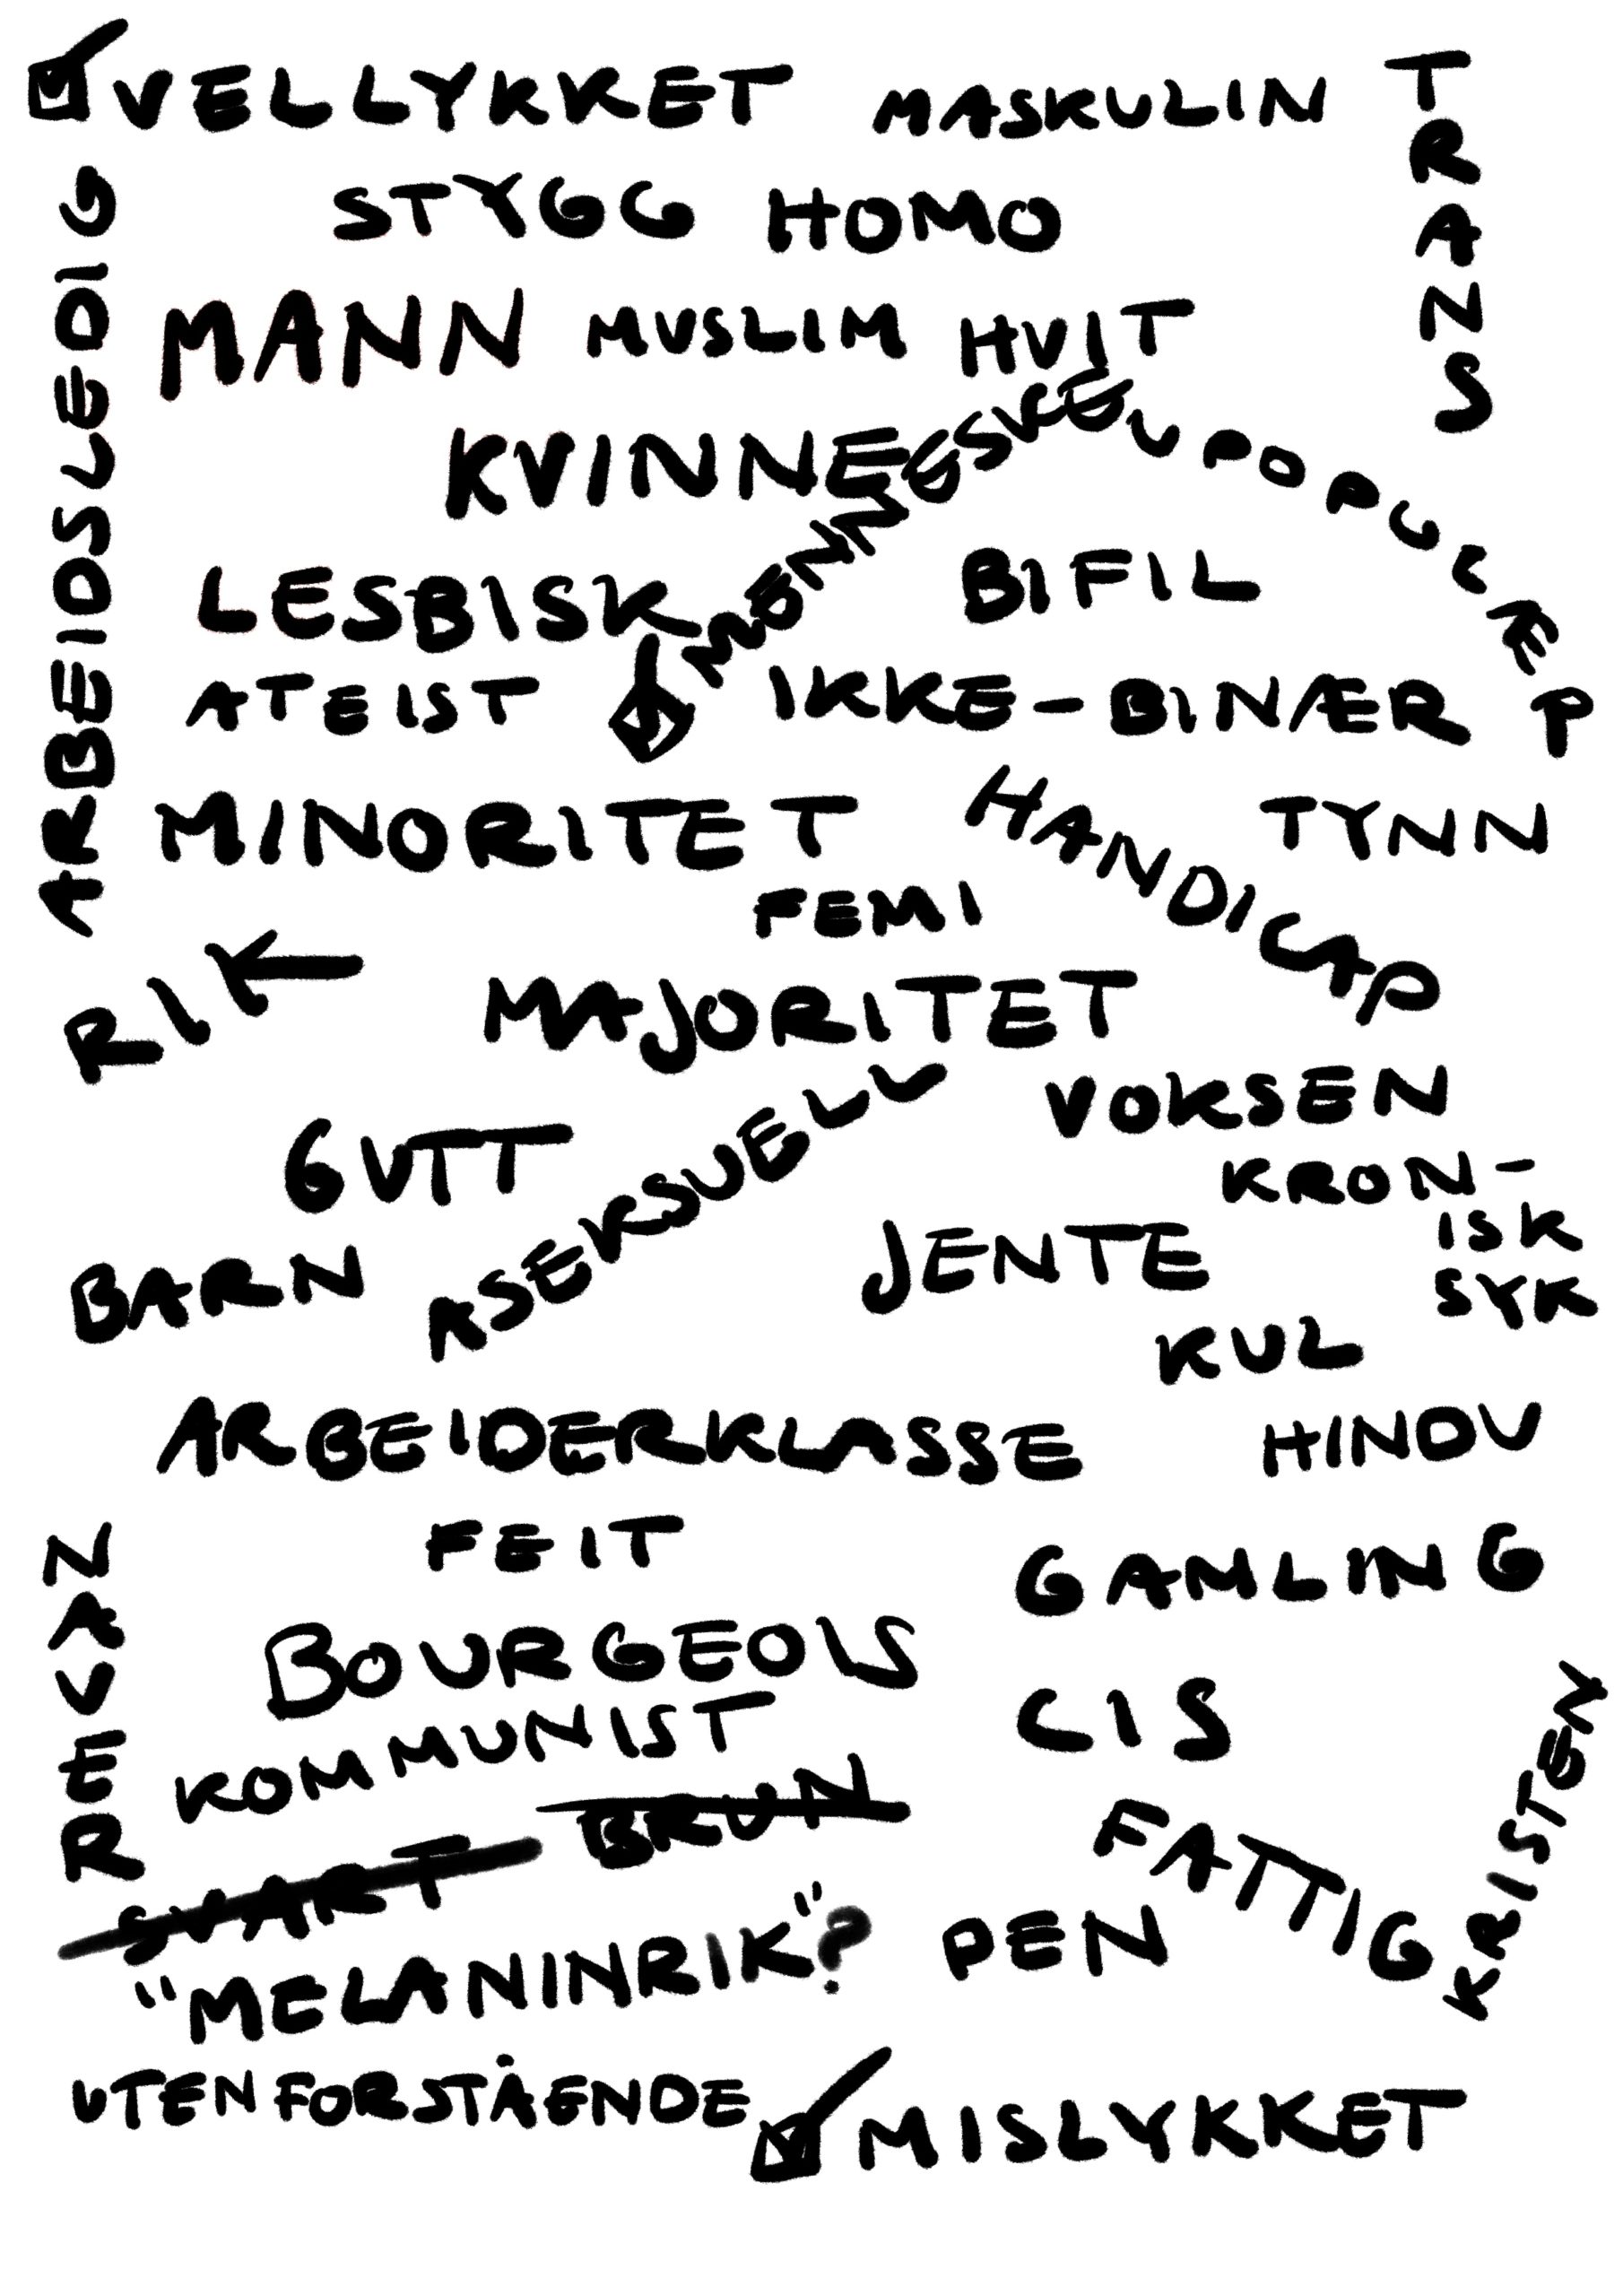 VELLYKKET MASKULIN
TRANS
ARBEIDSLEDIG
STYGG HOMO
MANN MUSLIM HVIT
KVINNE
MØNNESKE
UPOPULÆR
LESBISK
BIFIL
ATEIST
IKKE-BINÆR
MINORITET
HANDICAP
TYNN
FEMI
RIK
MAJORITET
VOKSEN
GUTT
ASEKSUELL
KRON-
ISK
SYK
BARN
JENTE
KUL
ARBEIDERKLASSE
HINDU
FEIT
GAMLING
NAVER
BOURGEOIS
CIS
KOMMUNIST
KRISTEN
BRUN
SVART
FATTIG
PEN
"MELANINRIK"?
UTENFORSTÅENDE
MISLYKKET